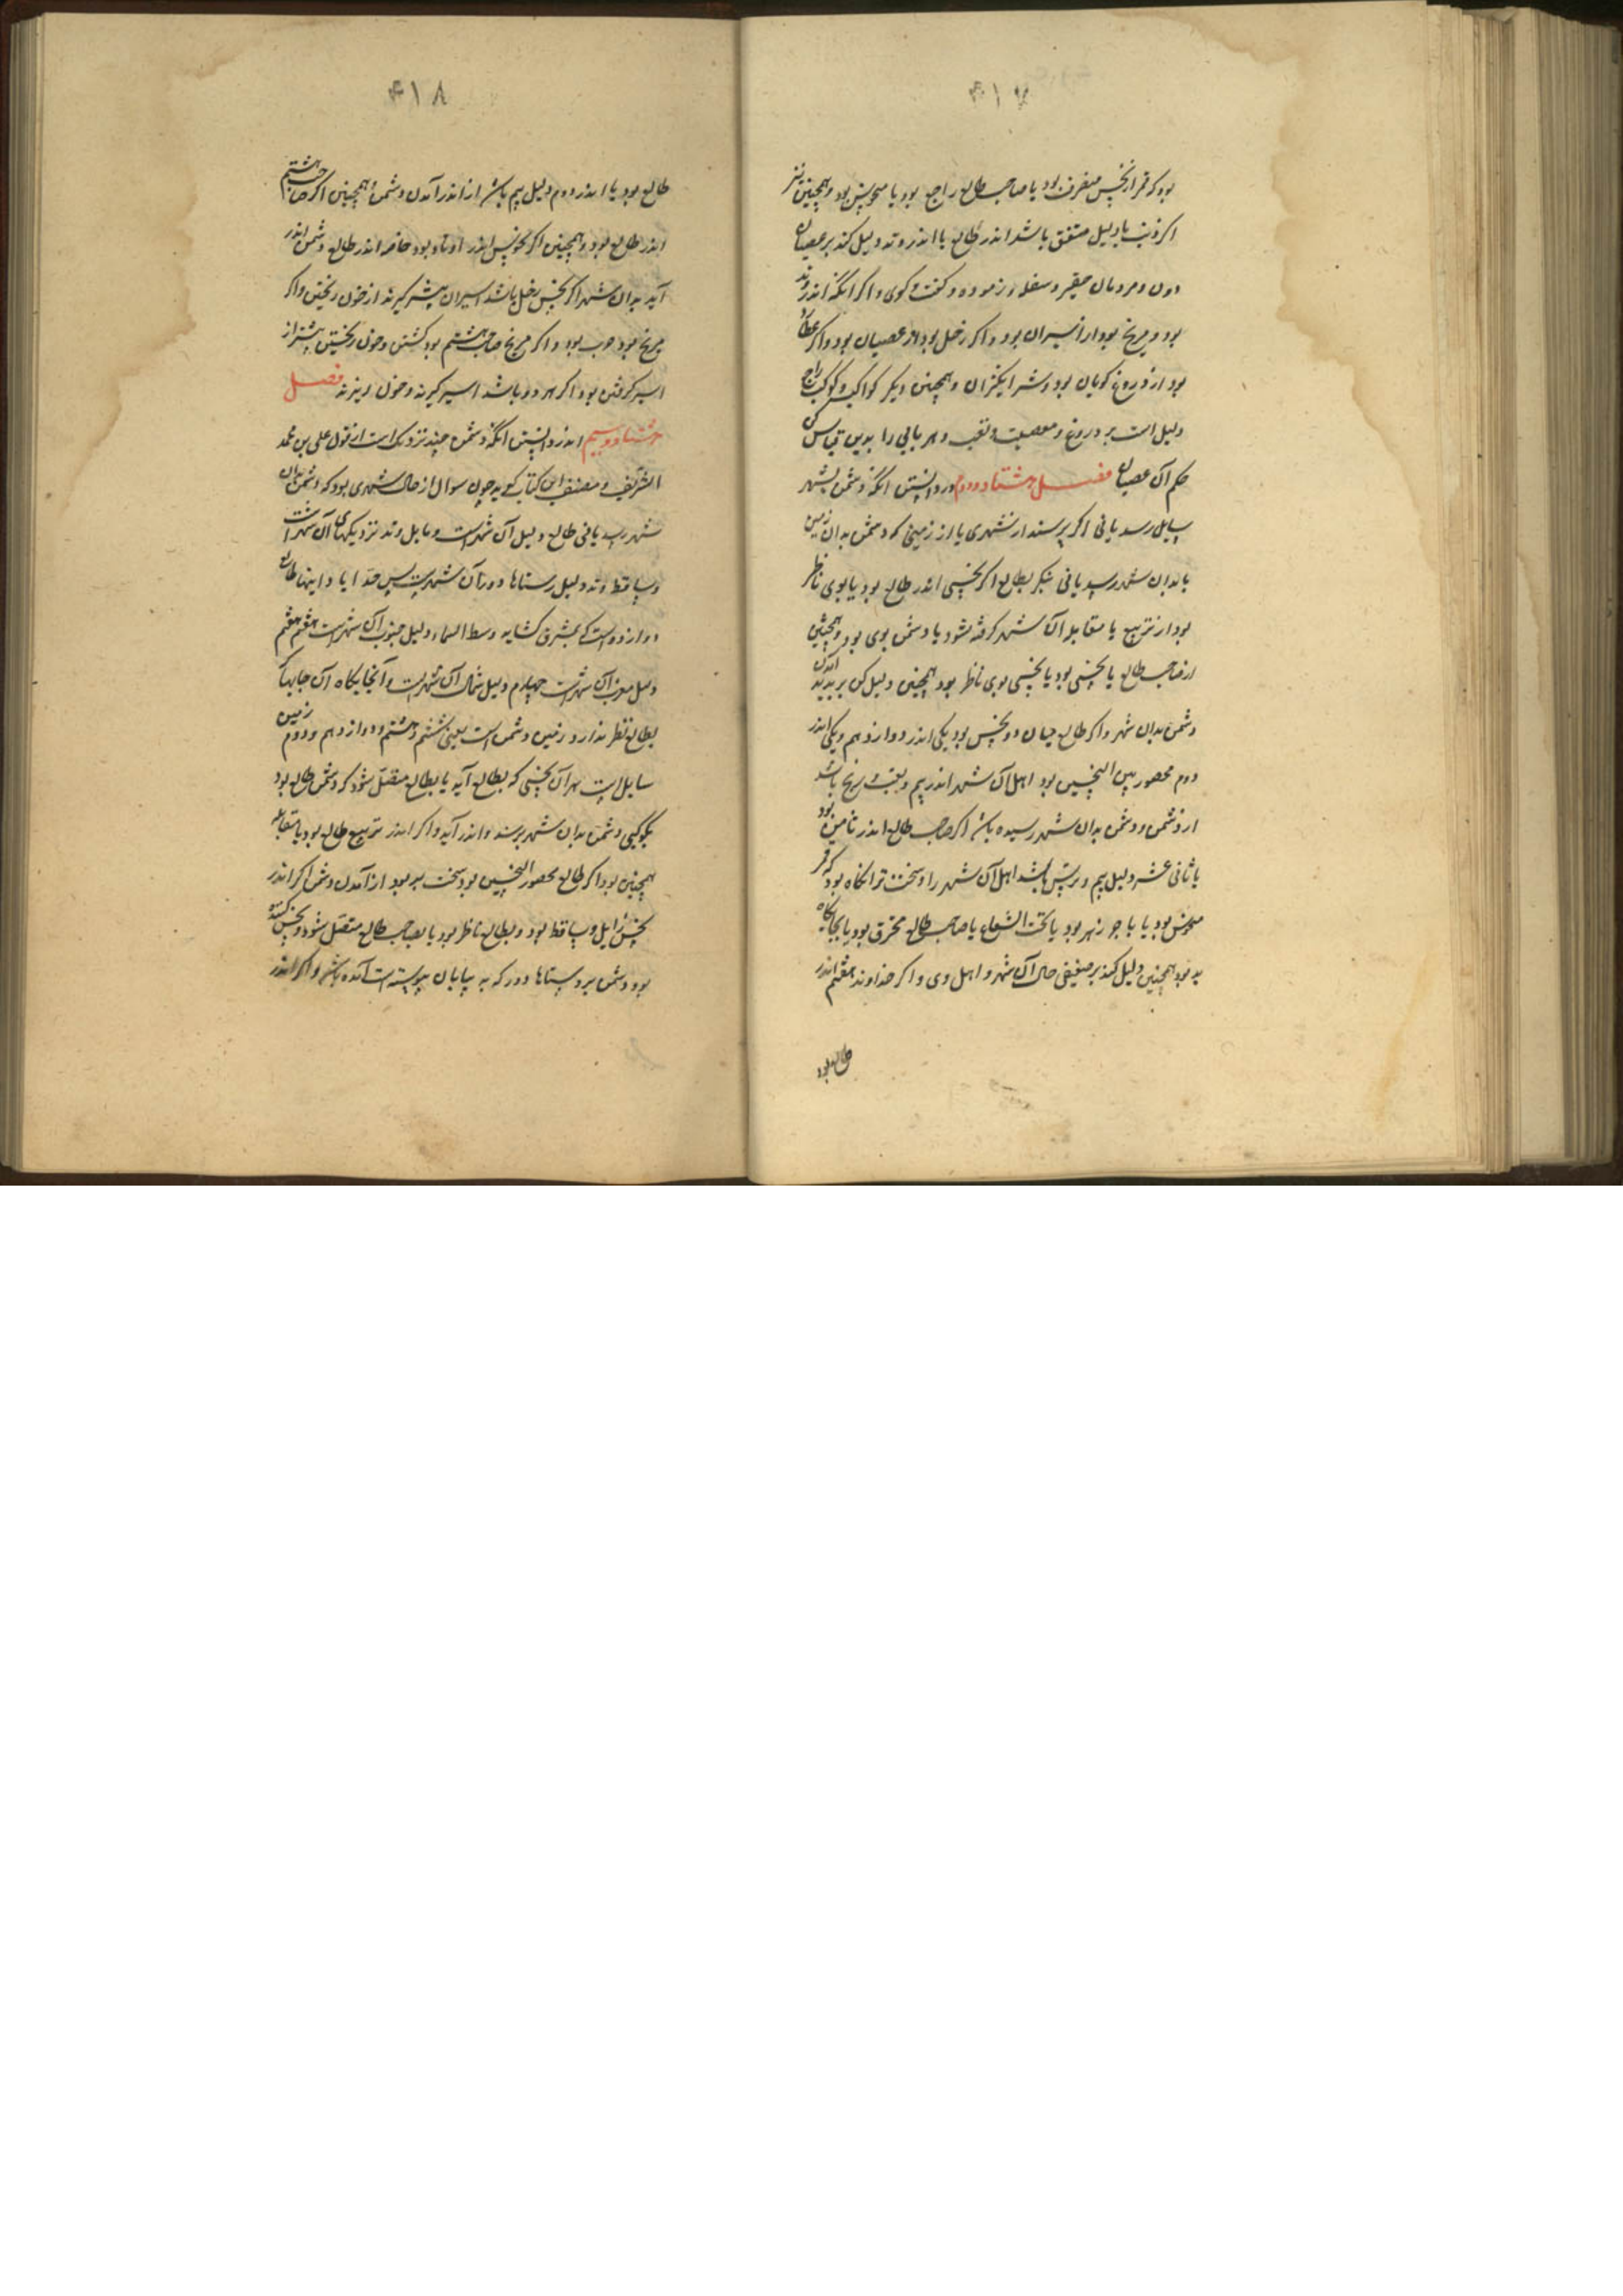 ۴۱۷
بود که قمر از نحس منصرف بود یا صاحب طالع راجع بود یا منحوس بود و همچنین نیز
اکر ذنب با دلیل متفق باشد اندر طالع یا اندر وتد دلیل کند بر عصیان
دون و مردمان حقیر و سفله و کفت و کوی و اکر انکه اندر وتد
بود و مریخ بود از اسیران بود و اکر زحل بود از عصیان بود و اکر عطارد
بود از دروغ کویان بود و شر انکیزان و همچنین دیکر کواکب و کوکب راجع
دلیل است بر دروغ و معصیت و تعب و هر بابی را بدین قیاس کن
حکم آن عصیان فصل هشتاد و دوم در دانستن انکه دشمن بشهر
سایل رسد یا نی اکر پرسند از شهری یا از زمینی که دشمن بدان زمین
یا بدان شهر رسد یا نی بنکر بطالع اکر نحسی اندر طالع بود یا بوی ناظر
بود از تربیع یا مقابله آن شهر کرفته شود یا دشمن بوی بود و همچنین
ار صاحب طالع یا نحسی بود یا نحسی بوی ناظر بود همچنین دلیل کن بر پدید آمدن
دشمن بدان شهر و اکر طالع میان دو نحس بود یکی اندر دوازدهم و یکی اندر
دوم محصور بین النحسین بود اهل آن شهر اندر بیم و تعب و رنج باشد
از دشمن و دشمن بدان شهر رسیده باشد اکر صاحب طالع اندر ثامن بود
یا ثانی عشر دلیل بیم و ترس باشد اهل آن شهر را و سخت تر انکاه بود که قمر
منحوس بود یا با جوزهر بود یا تحت الشعاع یا صاحب طالع محترق بود یا بجایکاه
بد بود همچنین دلیل کند بر ضعیفی حال آن شهر و اهل وی و اکر خداوند هفتم اندر
طالع بود
۴۱۸
طالع بود یا اندر دوم دلیل بیم باشد از اندر آمدن دشمن و همچنین اکر صاحب هشتم
اندر طالع بود و همچنین اکر نحوس اندر اوتاد بود خاصه اندر طالع دشمن اندر
آید بدان شهر اکر نحس زحل باشد اسیران بیشتر کیرند از خون ریختن و اکر
مریخ بود حرب بود و اکر مریخ صاحب هشتم بود کشتن و خون ریختن بیشتر از
اسیر کرفتن بود اکر هر دو باشد اسیر کیرند و خون ریزند فصل
هشتاد و سیم اندر دانستن انکه دشمن چند نزدیک است از قول علی بن محمد
الشریف و مصنف این کتاب کوید چون سوال از حال شهری بود که دشمن بدان
شهر رسد یا نی طالع دلیل آن شهر است و مایل وتد نزدیکهای آن شهر است
و ساقط وتد دلیل رستاها دور آن شهر است پس جدا باد اینها طالع
دوازدهست کی بمشرق کشاید وسط السماء دلیل جنوب آن شهر است هفتم
دلیل مغرب آن شهر است چهارم دلیل شمال آن شهر است و آنجایکاه آن جایها که
بطالع نظر ندارد زمین دشمن است یعنی ششم و هشتم و دوازدهم و دوم زمین
سایل است هر آن نحسی که بطالع آید یا بطالع متصل شود که دشمن طالع بود
بکوکبی دشمن بدان شهر برسد و اندر آید و اکر اندر تربیع طالع بود یا مقابله
همچنین بود اکر طالع محصور النحسین بود سخت تر بود از آمدن دشمن اکر اندر
نحس زایل و ساقط بود و بطالع ناظر بود یا بصاحب طالع متصل شود و نحس
بود دشمن بروستاها دور که به بیابان پیوسته است آمده باشد و اکر اندر